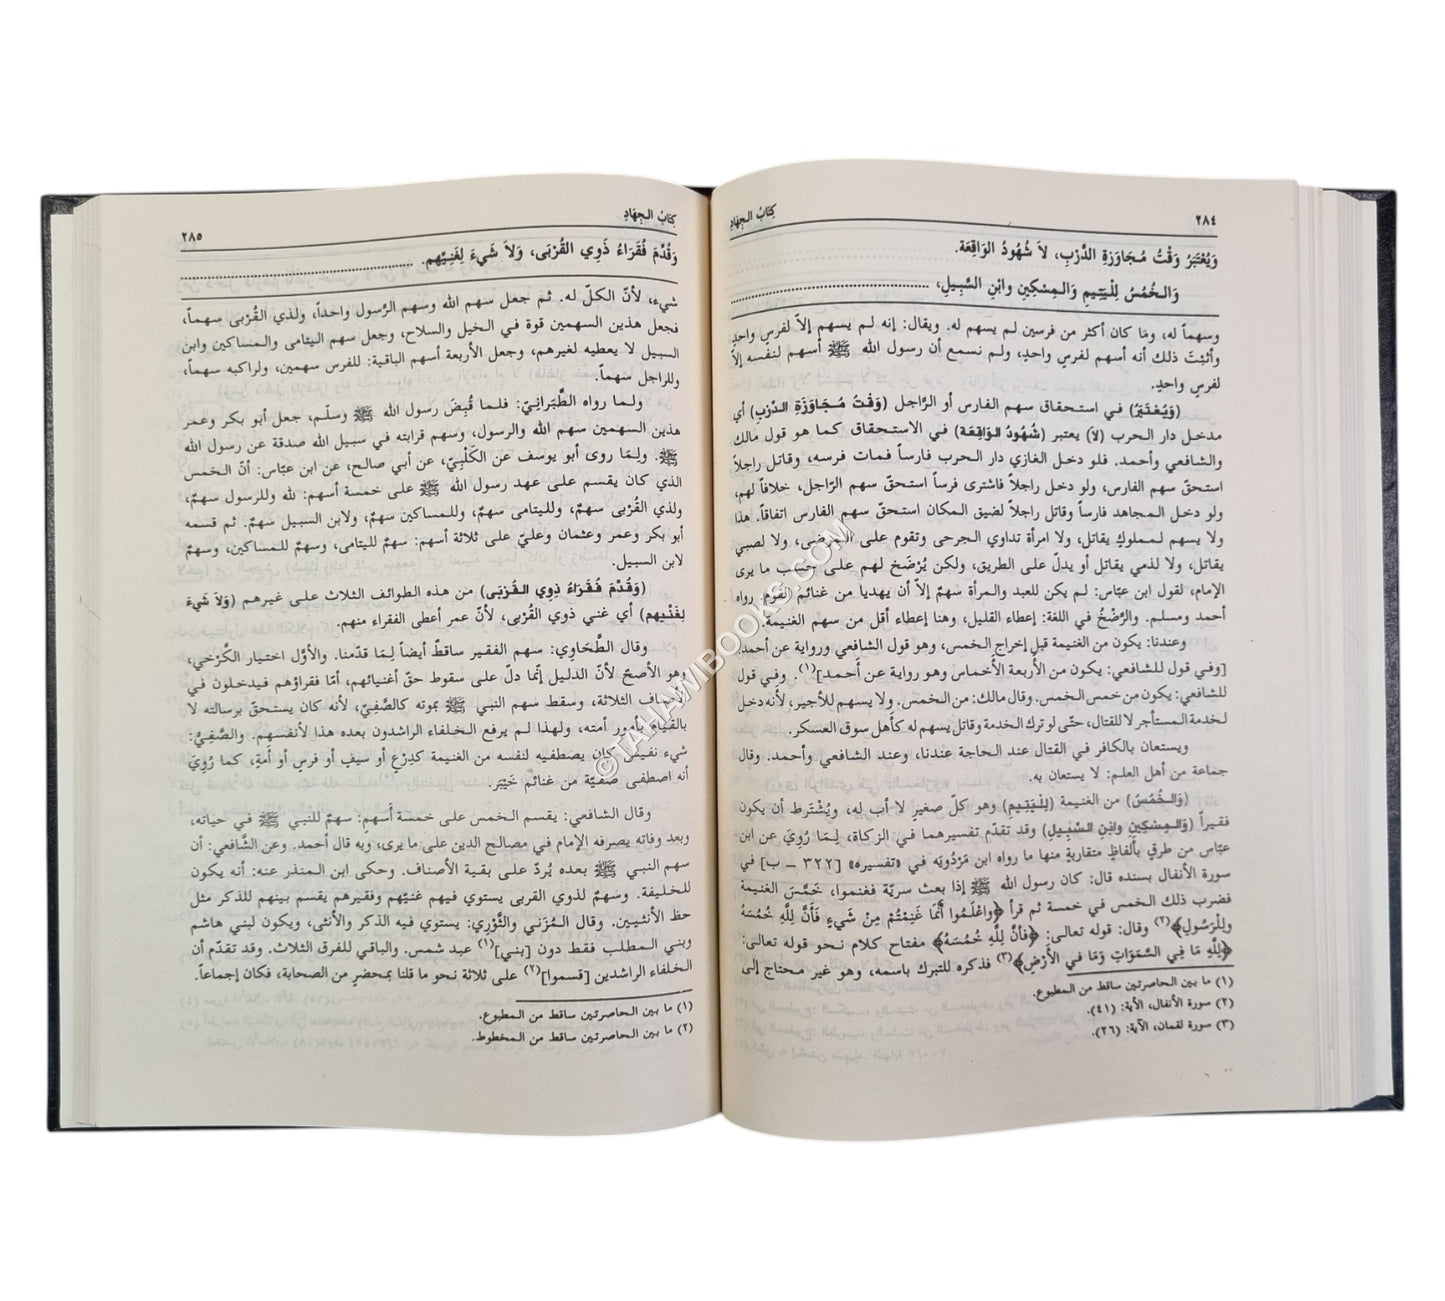 ٢٨٤
كِتَابُ الجِهَادِ
وَيُعْتَبَرُ وَقْتُ مُجَاوَزَةِ الدَّرْبِ، لاَ شُهُودُ الوَاقِعَة.
وَالخُمُسُ لِلْيَتِيمِ وَالمِسْكِين وابْنِ السَّبِيلِ، ....................
وسهماً له، ومَا كان أكثر من فرسين لم يسهم له. ويقال: إنه لم يسهم إلاَّ لفرسٍ واحدٍ
وأثبَتَ ذلك أنه أسهم لفرسٍ واحدٍ، ولم نسمع أن رسول الله ﷺ أسهم لنفسه إلاَّ
لفرسٍ واحدٍ.
(وَيُعْتَبَرُ) في استحقاق سهم الفارس أو الرَّاجل (وَقْتُ مُجَاوَزَةِ الدَّرْبِ) أي
مدخل دار الحرب (لاَ) يعتبر (شُهُودُ الوَاقِعَة) في الاستحقاق كما هو قول مالك
والشافعي وأحمد. فلو دخل الغازي دار الحرب فارساً فمات فرسه، وقاتل راجلاً
استحقّ سهم الفارس، ولو دخل راجلاً فاشترى فرساً استحقّ سهم الرَّاجل، خلافاً لهم،
ولو دخل المجاهد فارساً وقاتل راجلاً لضيق المكان استحقّ سهم الفارس اتفاقاً. هذا
ولا يسهم لمملوكٍ يقاتل، ولا امرأة تداوي الجرحى وتقوم على المرضى، ولا لصبي
يقاتل، ولا لذمي يقاتل أو يدلّ على الطريق، ولكن يُرْضَخ لهم على حسب ما يرى
الإمام، لقول ابن عبّاس: لم يكن للعبد والمرأة سهمٌ إلاَّ أن يهديا من غنائم القوم. رواه
أحمد ومسلم. والرَّضْخُ في اللغة: إعطاء القليل، وهنا إعطاء أقل من سهم الغنيمة.
وعندنا: يكون من الغنيمة قبل إخراج الخمس، وهو قول الشافعي ورواية عن أحمد،
[وفي قول للشافعي: يكون من الأربعة الأخماس وهو رواية عن أحمد](١). وفي قول
للشافعي: يكون من خمس الخمس. وقال مالك: من الخمس. ولا يسهم للأجير، لأنه دخل
لخدمة المستأجر لا للقتال، حتّى لو ترك الخدمة وقاتل يسهم له كأهل سوق العسكر.
ويستعان بالكافر في القتال عند الحاجة عندنا، وعند الشافعي وأحمد. وقال
جماعة من أهل العلم: لا يستعان به.
(وَالخُمُسُ) من الغنيمة (لِلْيَتِيمِ) وهو كلّ صغيرٍ لا أب له، ويُشْتَرط أن يكون
فقيراً (وَالمِسْكِين وابْنِ السَّبِيلِ) وقد تقدّم تفسيرهما في الزكاة، لِمَا رُوِيَ عن ابن
عبّاس من طرقٍ بألفاظٍ متقاربةٍ منها ما رواه ابن مَرْدُويَه في «تفسيره» [٣٢٢ – ب] في
سورة الأنفال بسنده قال: كان رسول الله ﷺ إذا بعث سريّة فغنموا، خَمَّسَ الغنيمة
فضرب ذلك الخمس في خمسة ثم قرأ ﴿واعْلَمُوا أَنَّمَا غَنِمْتُمْ مِنْ شَيْءٍ فَأَنَّ لِلَّهِ خُمُسَهُ
ولِلْرَسُولِ﴾(٢) وقال: قوله تعالى: ﴿فأنَّ لِلَّهِ خُمُسَهُ﴾ مفتاح كلام نحو قوله تعالى:
﴿لِلَّهِ مَا فِي السَّمَوَاتِ وَمَا في الأَرْضِ﴾(٣) فذكره للتبرك باسمه، وهو غير محتاج إلى
(١) ما بين الحاصرتين ساقط من المطبوع.
(٢) سورة الأنفال، الآية: (٤١).
(٣) سورة لقمان، الآية: (٢٦).
كِتَابُ الجِهَادِ
٢٨٥
وَقُدِّمَ فُقَرَاءُ ذَوِي القُرْبَى، وَلاَ شَيءَ لِغَنِيِّهِم. ....................
شيء، لأنّ الكلّ له. ثم جعل سهم الله وسهم الرَّسول واحداً، ولذي القُرْبى سهماً،
فجعل هذين السهمين قوة في الخيل والسلاح، وجعل سهم اليتامى والمساكين وابن
السبيل لا يعطيه لغيرهم، وجعل الأربعة أسهم الباقية: للفرس سهمين، ولراكبه سهماً،
وللراجل سهماً.
ولما رواه الطَّبَرَانيّ: فلما قُبِضَ رسول الله ﷺ وسلّم، جعل أبو بكر وعمر
هذين السهمين سهم الله والرسول، وسهم قرابته في سبيل الله صدقة عن رسول الله
ﷺ. ولِمَا روى أبو يوسف عن الكَلْبِيّ، عن أبي صالح، عن ابن عبّاس: أنّ الخمس
الذي كان يقسم على عهد رسول الله ﷺ على خمسة أسهم: لله وللرسول سهمٌ،
ولذي القُرْبى سهمٌ، ولليتامى سهمٌ، وللمساكين سهمٌ، ولابن السبيل سهمٌ. ثم قسمه
أبو بكر وعمر وعثمان وعليّ على ثلاثة أسهم: سهمٌ لليتامى، وسهمٌ للمساكين، وسهمٌ
لابن السبيل.
(وَقُدِّمَ فُقَرَاءُ ذِوِي القُرْبَى) من هذه الطوائف الثلاث على غيرهم (وَلاَ شَيءَ
لِغَنْيِهم) أي غني ذوي القُرْبى، لأنّ عمر أعطى الفقراء منهم.
وقال الطَّحَاوِي: سهم الفقير ساقطٌ أيضاً لِمَا قدّمنا. والأوَّل اختيار الكَرْخي،
وهو الأصحّ لأنّ الدليل إنّما دلّ على سقوط حقّ أغنيائهم، أمّا فقراؤهم فيدخلون في
الأصناف الثلاثة، وسقط سهم النبي ﷺ بموته كالصَّفِيّ، لأنه كان يستحقّ برسالته لا
بالقيام بأمور أمته، ولهذا لم يرفع الخلفاء الراشدون بعده هذا لأنفسهم. والصَّفِيُّ:
شيء نفيسٌ كان يصطفيه لنفسه من الغنيمة كدِرْعٍ أو سيفٍ أو فرس أو أَمَةٍ، كما رُوِيَ
أنه اصطفى صفيّة من غنائم خَيْبَر.
وقال الشافعي: يقسم الخمس على خمسة أَسهم: سهمٌ للنبي ﷺ في حياته،
وبعد وفاته يصرفه الإمام في مصالح الدين على ما يرى، وبه قال أحمد. وعن الشَّافعي: أن
سهم النبي ﷺ بعده يُردّ على بقية الأصناف. وحكى ابن المنذر عنه: أنه يكون
للخليفة. وسهمٌ لذوي القربى يستوي فيهم غنيّهم وفقيرهم يقسم بينهم للذكر مثل
حظ الأنثيين. وقال المُزَني والثَّوْرِي: يستوي فيه الذكر والأنثى، ويكون لبني هاشم
وبني المطلب فقط دون [بني](١) عبد شمس. والباقي للفرق الثلاث. وقد تقدّم أن
الخلفاء الراشدين [قسموا](٢) على ثلاثة نحو ما قلنا بمحضرٍ من الصحابة، فكان إجماعاً.
(١) ما بين الحاصرتين ساقط من المطبوع.
(٢) ما بين الحاصرتين ساقط من المخطوط.
© TAHAWIBOOKS.COM